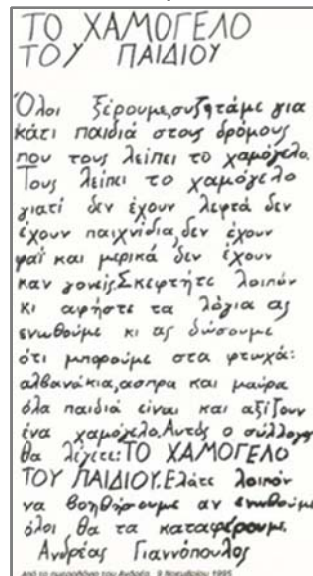 ΤΟ ΧΑΜΟΓΕΛΟ
ΤΟΥ ΠΑΙΔΙΟΥ
Όλοι ξέρουμε,συζητάμε για
κάτι παιδιά στους δρόμους
που τους λείπει το χαμόγελο.
Τους λείπει το χαμόγελο
γιατί δεν έχουν λεφτά δεν
έχουν παιχνίδια,δεν έχουν
φαϊ και μερικά δεν έχουν
καν γονείς.Σκεφτήτε λοιπόν
κι αφήστε τα λόγια ας
ενωθούμε κι ας δώσουμε
ότι μπορούμε στα φτωχά:
αλβανάκια,ασπρα και μαύρα
όλα παιδιά είναι και αξίζουν
ένα χαμόγελο.Αυτός ο σύλλογος
θα λέγετε:ΤΟ ΧΑΜΟΓΕΛΟ
ΤΟΥ ΠΑΙΔΙΟΥ.Ελάτε λοιπόν
να βοηθήσουμε αν ενωθούμε
όλοι θα τα καταφέρουμε.
Ανδρέας Γιαννόπουλος
Από το ημερολόγιο του Ανδρέα, 9 Νοεμβρίου 1995